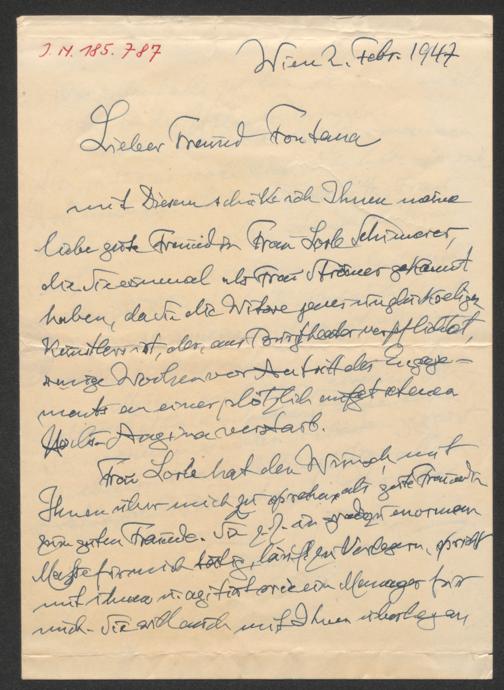 J.N. 185.787
Wien 2. Febr. 1947
Lieber Freund Fontana
mit Diesem schicke ich Ihnen meine
liebe gute Freundin Frau Lorle Schinnerer,
die Sie einmal als Frau gekannt
haben, da sie die Witwe jenes unglückseligen
Künstlers ist, der, ans Burgtheater verpflichtet,
einige Wochen vor Antritt des Engage-
ments an einer plötzlich aufgetretenen
Angina verstarb.
Frau Lorle hat den Wunsch, mit
Ihnen über mich zu sprechen, als gute Freundin
zum guten Freunde. Sie ist in geradezu enormem
Maße für mich tätig, läuft zu Verlegern, spricht
mit ihnen, agitiert wie ein Manager für
mich. Sie will auch mit Ihnen überlegen